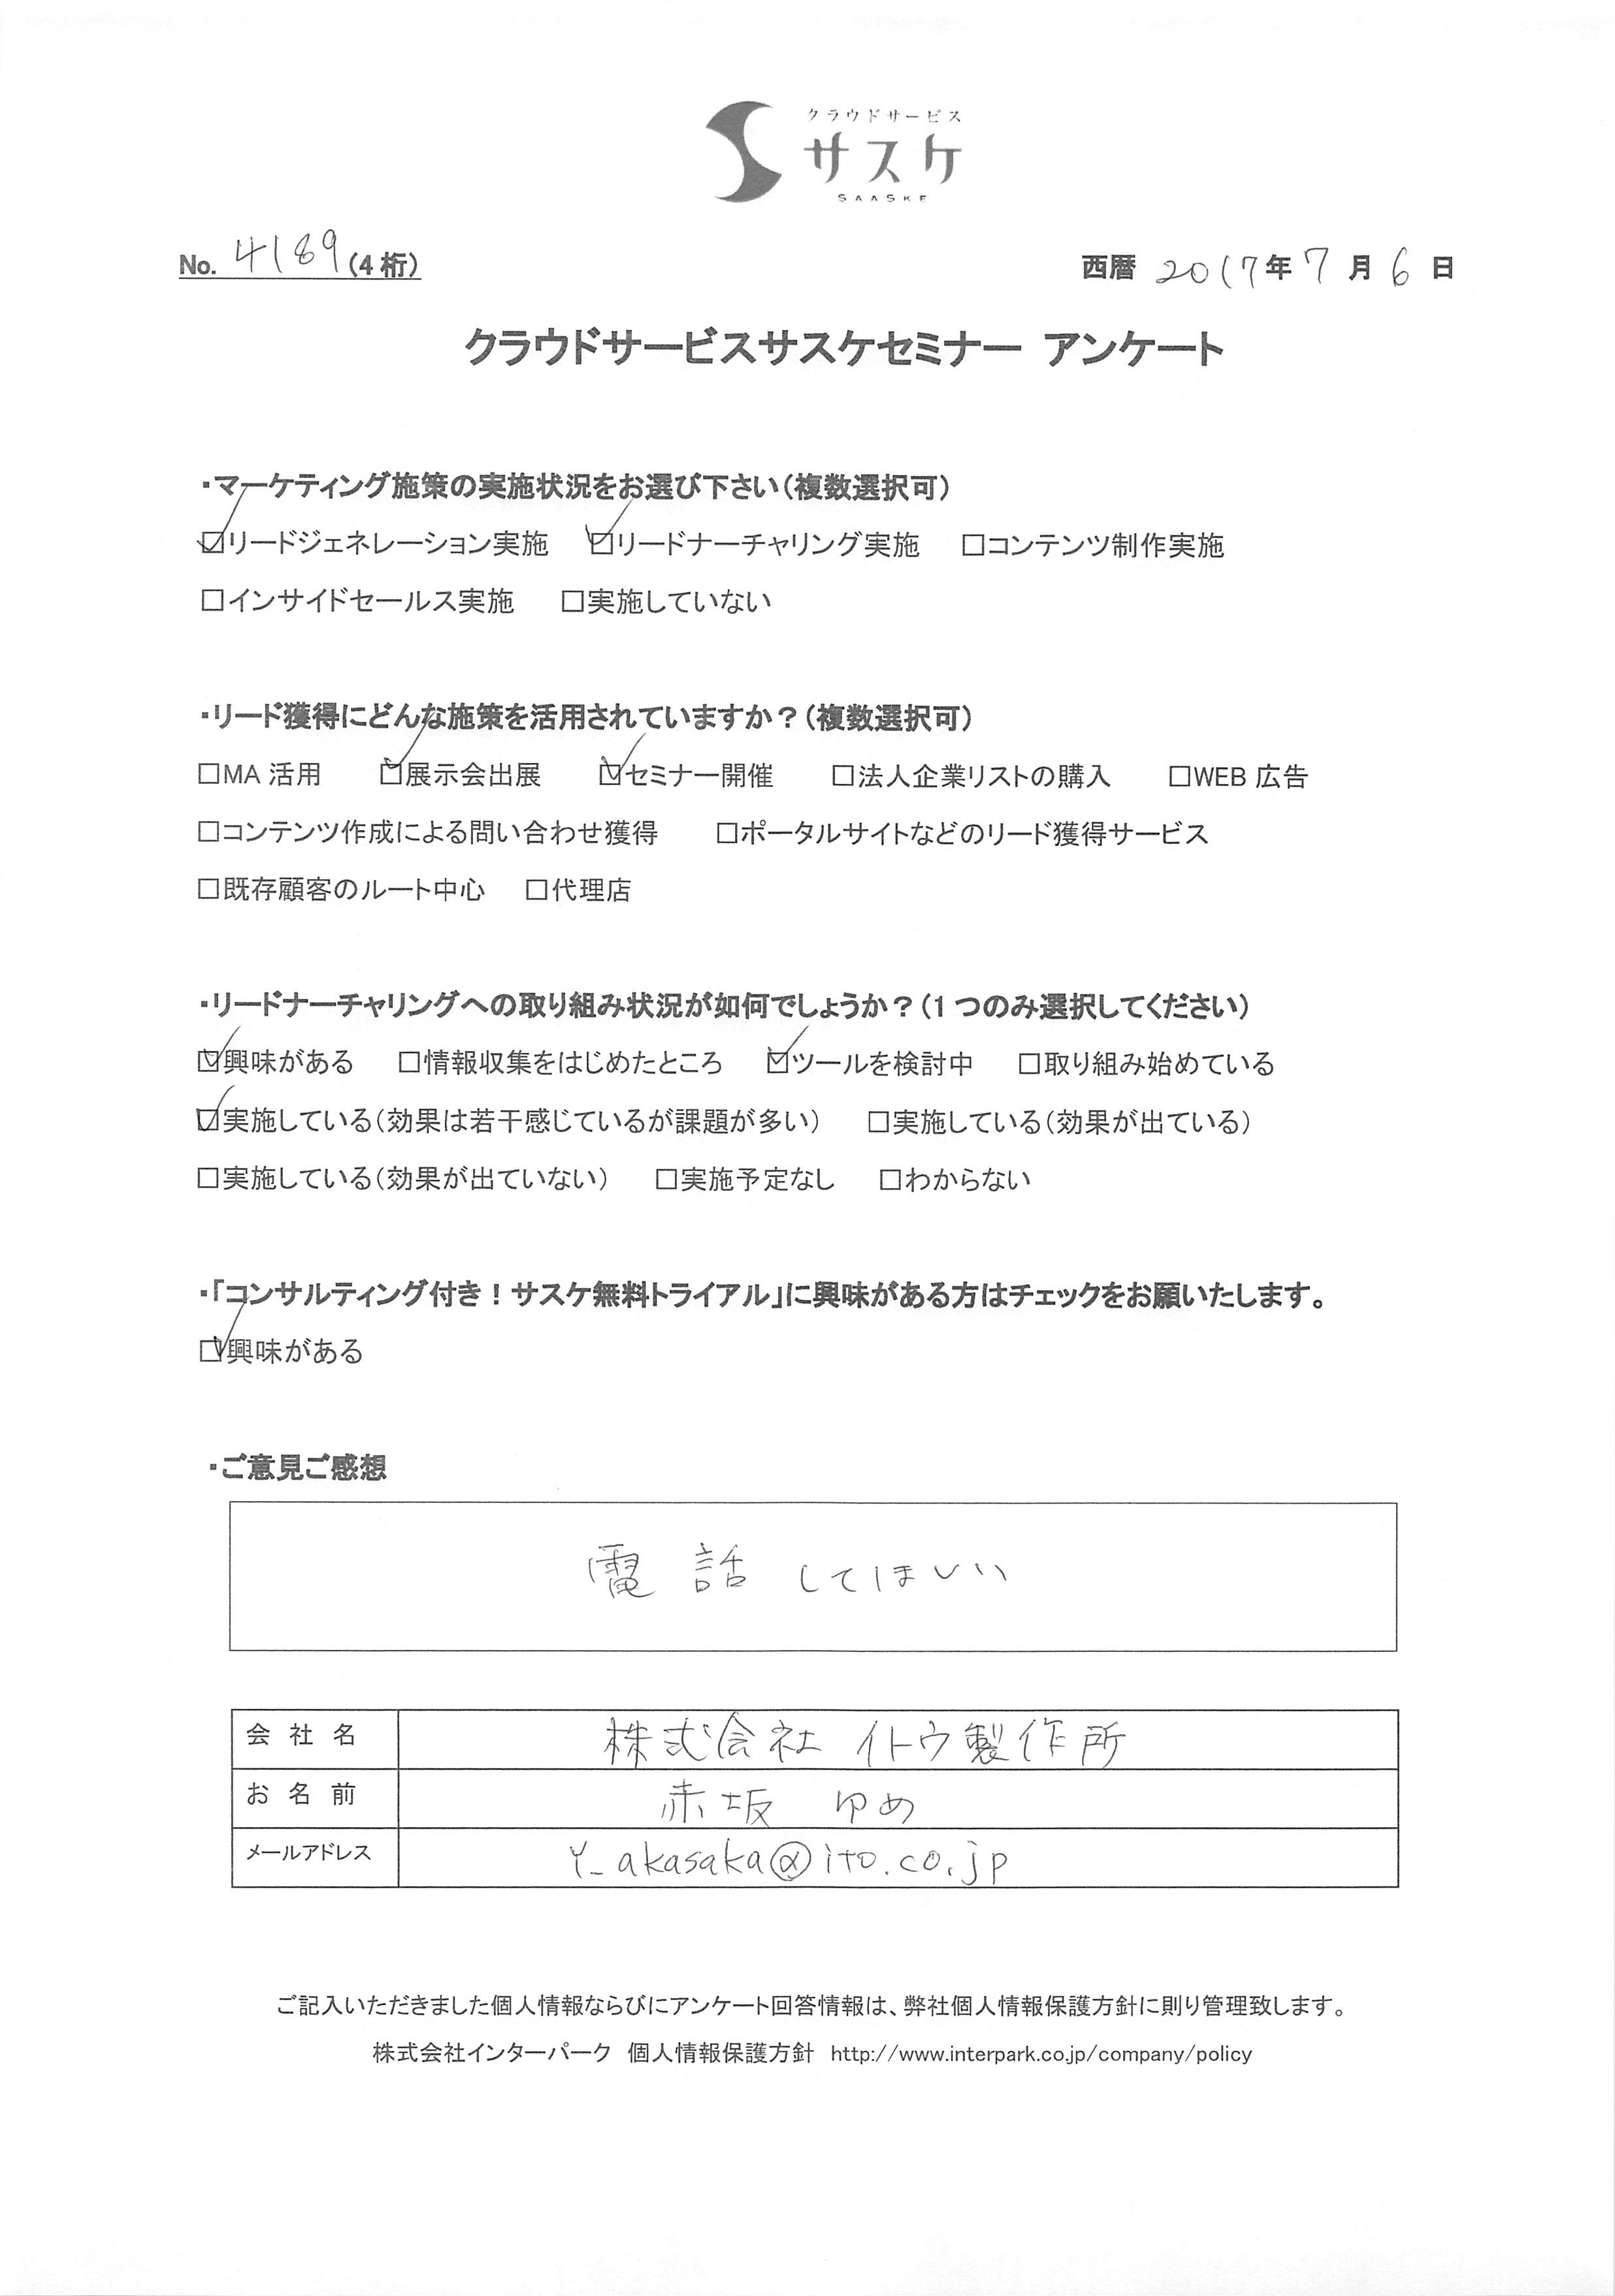 クラウドサービス
サスケ
SAASKE
No. 4189(4桁)
西暦 2017年7月6日
クラウドサービスサスケセミナー アンケート
・マーケティング施策の実施状況をお選び下さい(複数選択可)
☑リードジェネレーション実施 ☑リードナーチャリング実施 □コンテンツ制作実施
□インサイドセールス実施 □実施していない
・リード獲得にどんな施策を活用されていますか?(複数選択可)
□MA 活用 ☑展示会出展 ☑セミナー開催 □法人企業リストの購入 □WEB 広告
□コンテンツ作成による問い合わせ獲得 □ポータルサイトなどのリード獲得サービス
□既存顧客のルート中心 □代理店
・リードナーチャリングへの取り組み状況が如何でしょうか?(1 つのみ選択してください)
☑興味がある □情報収集をはじめたところ ☑ツールを検討中 □取り組み始めている
☑実施している(効果は若干感じているが課題が多い) □実施している(効果が出ている)
□実施している(効果が出ていない) □実施予定なし □わからない
・「コンサルティング付き!サスケ無料トライアル」に興味がある方はチェックをお願いたします。
☑興味がある
・ご意見ご感想
電話してほしい
会社名 株式会社 イトウ製作所
お名前 赤坂 ゆめ
メールアドレス Y_akasaka@ito.co.jp
ご記入いただきました個人情報ならびにアンケート回答情報は、弊社個人情報保護方針に則り管理致します。
株式会社インターパーク 個人情報保護方針 http://www.interpark.co.jp/company/policy